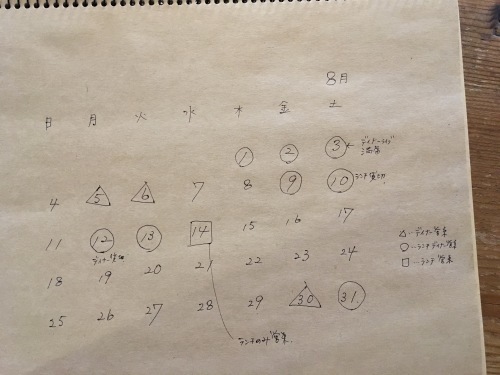 8月
日 月 火 水 木 金 土
1 2 3 ← ディナータイム
満席
4 5 6 7 8 9 10 ランチ貸切
11 12 13 14 15 16 17
ディナー貸切
△…ディナー営業
○…ランチディナー営業
□…ランチ営業
18 19 20 21 22 23 24
25 26 27 28 29 30 31
ランチのみ営業